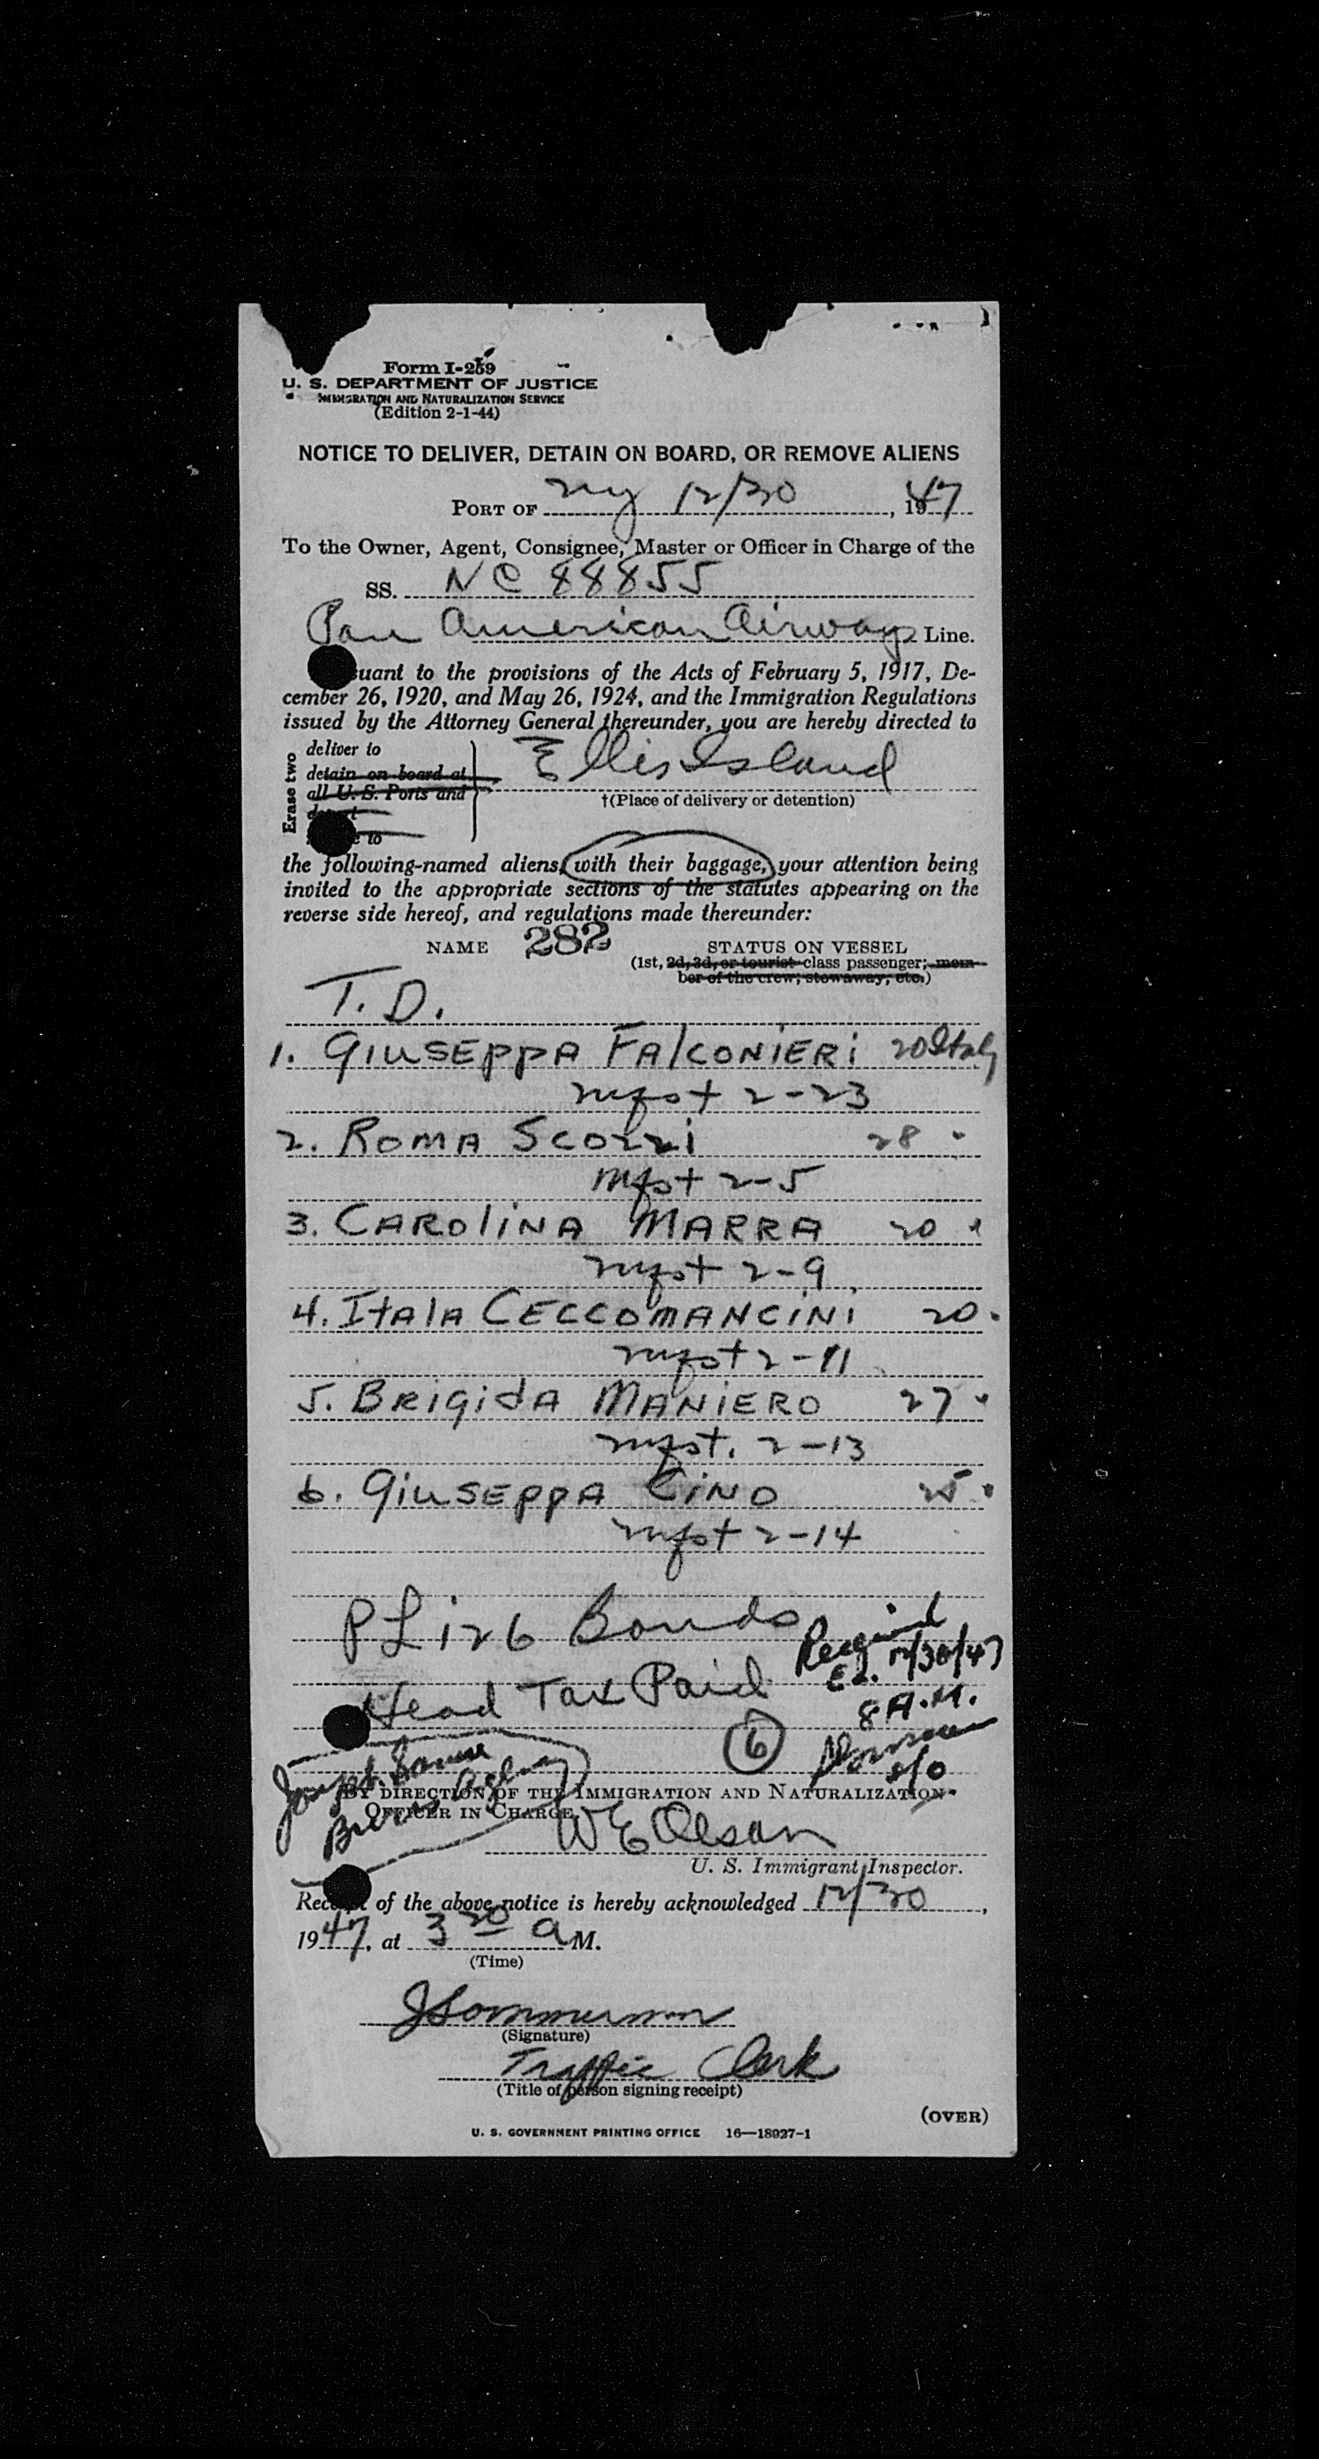 Form I-259
U. S. DEPARTMENT OF JUSTICE
IMMIGRATION AND NATURALIZATION SERVICE
(Edition 2-1-44)
NOTICE TO DELIVER, DETAIN ON BOARD, OR REMOVE ALIENS
PORT OF NY 12/30, 1947
To the Owner, Agent, Consignee, Master or Officer in Charge of the
SS. NC 88855
Pan American Airways Line.
uant to the provisions of the Acts of February 5, 1917, De-
cember 26, 1920, and May 26, 1924, and the Immigration Regulations
issued by the Attorney General thereunder, you are hereby directed to
Erase two
deliver to
detain on board at
all U. S. Ports and
Ellis Island
†(Place of delivery or detention)
to
the following-named aliens, with their baggage, your attention being
invited to the appropriate sections of the statutes appearing on the
reverse side hereof, and regulations made thereunder:
NAME 282 STATUS ON VESSEL
(1st, 2d, 3d, or tourist class passenger; mem-
ber of the crew; stowaway, etc.)
T. D.
1. GIUSEPPA FALCONIERI 20 Italy
mfst 2-23
2. ROMA SCOZZI 28 "
mfst 2-5
3. CAROLINA MARRA 20 "
mfst 2-9
4. ITALA CECCOMANCINI 20 "
mfst 2-11
5. BRIGIDA MANIERO 27 "
mfst. 2-13
6. GIUSEPPA CINO 25 "
mfst 2-14
PL 126 Bonds
Received
E.I. 12/30/47
Head Tax Paid
8 A.M.
6
Joseph
BY DIRECTION OF THE IMMIGRATION AND NATURALIZATION
OFFICER IN CHARGE
W E Olson
U. S. Immigrant Inspector.
Receipt of the above notice is hereby acknowledged 12/30,
1947, at 3 20 a M.
(Time)
J Sommerman
(Signature)
Traffic Clerk
(Title of person signing receipt)
(OVER)
U. S. GOVERNMENT PRINTING OFFICE 16—18927-1